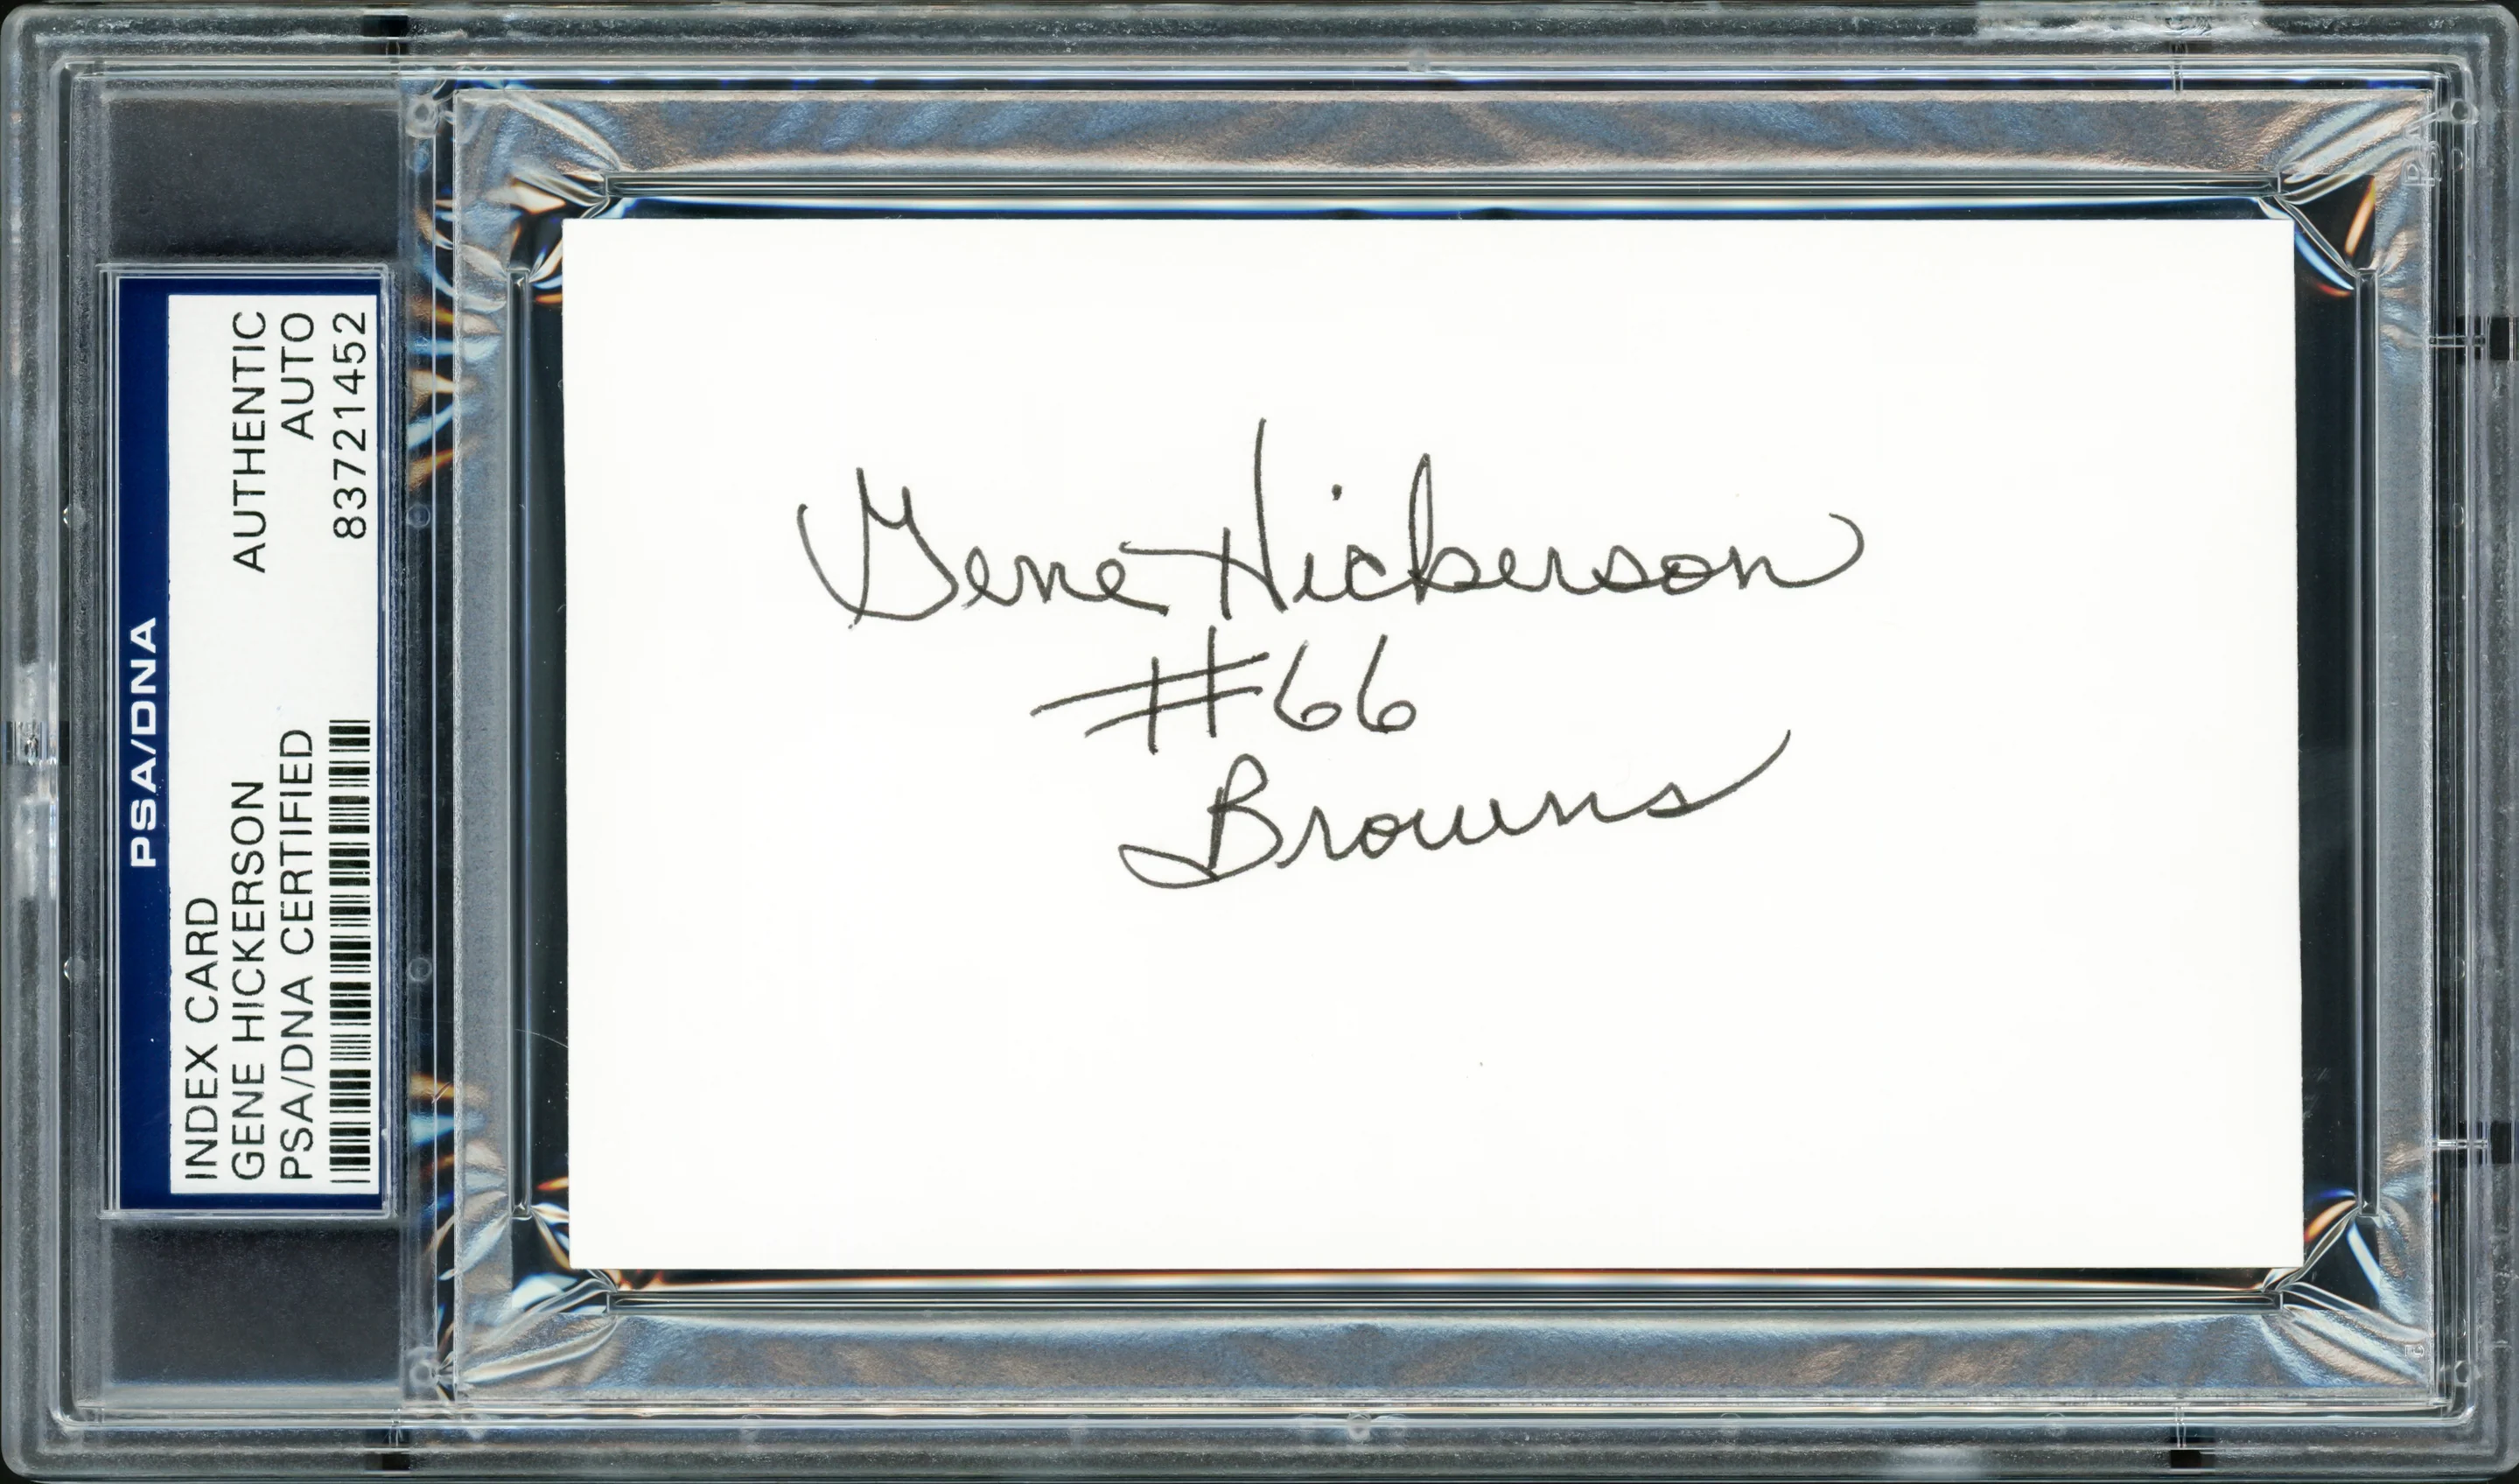 PSA/DNA
INDEX CARD
GENE HICKERSON
PSA/DNA CERTIFIED
AUTHENTIC
AUTO
83721452
Gene Hickerson
#66
Browns